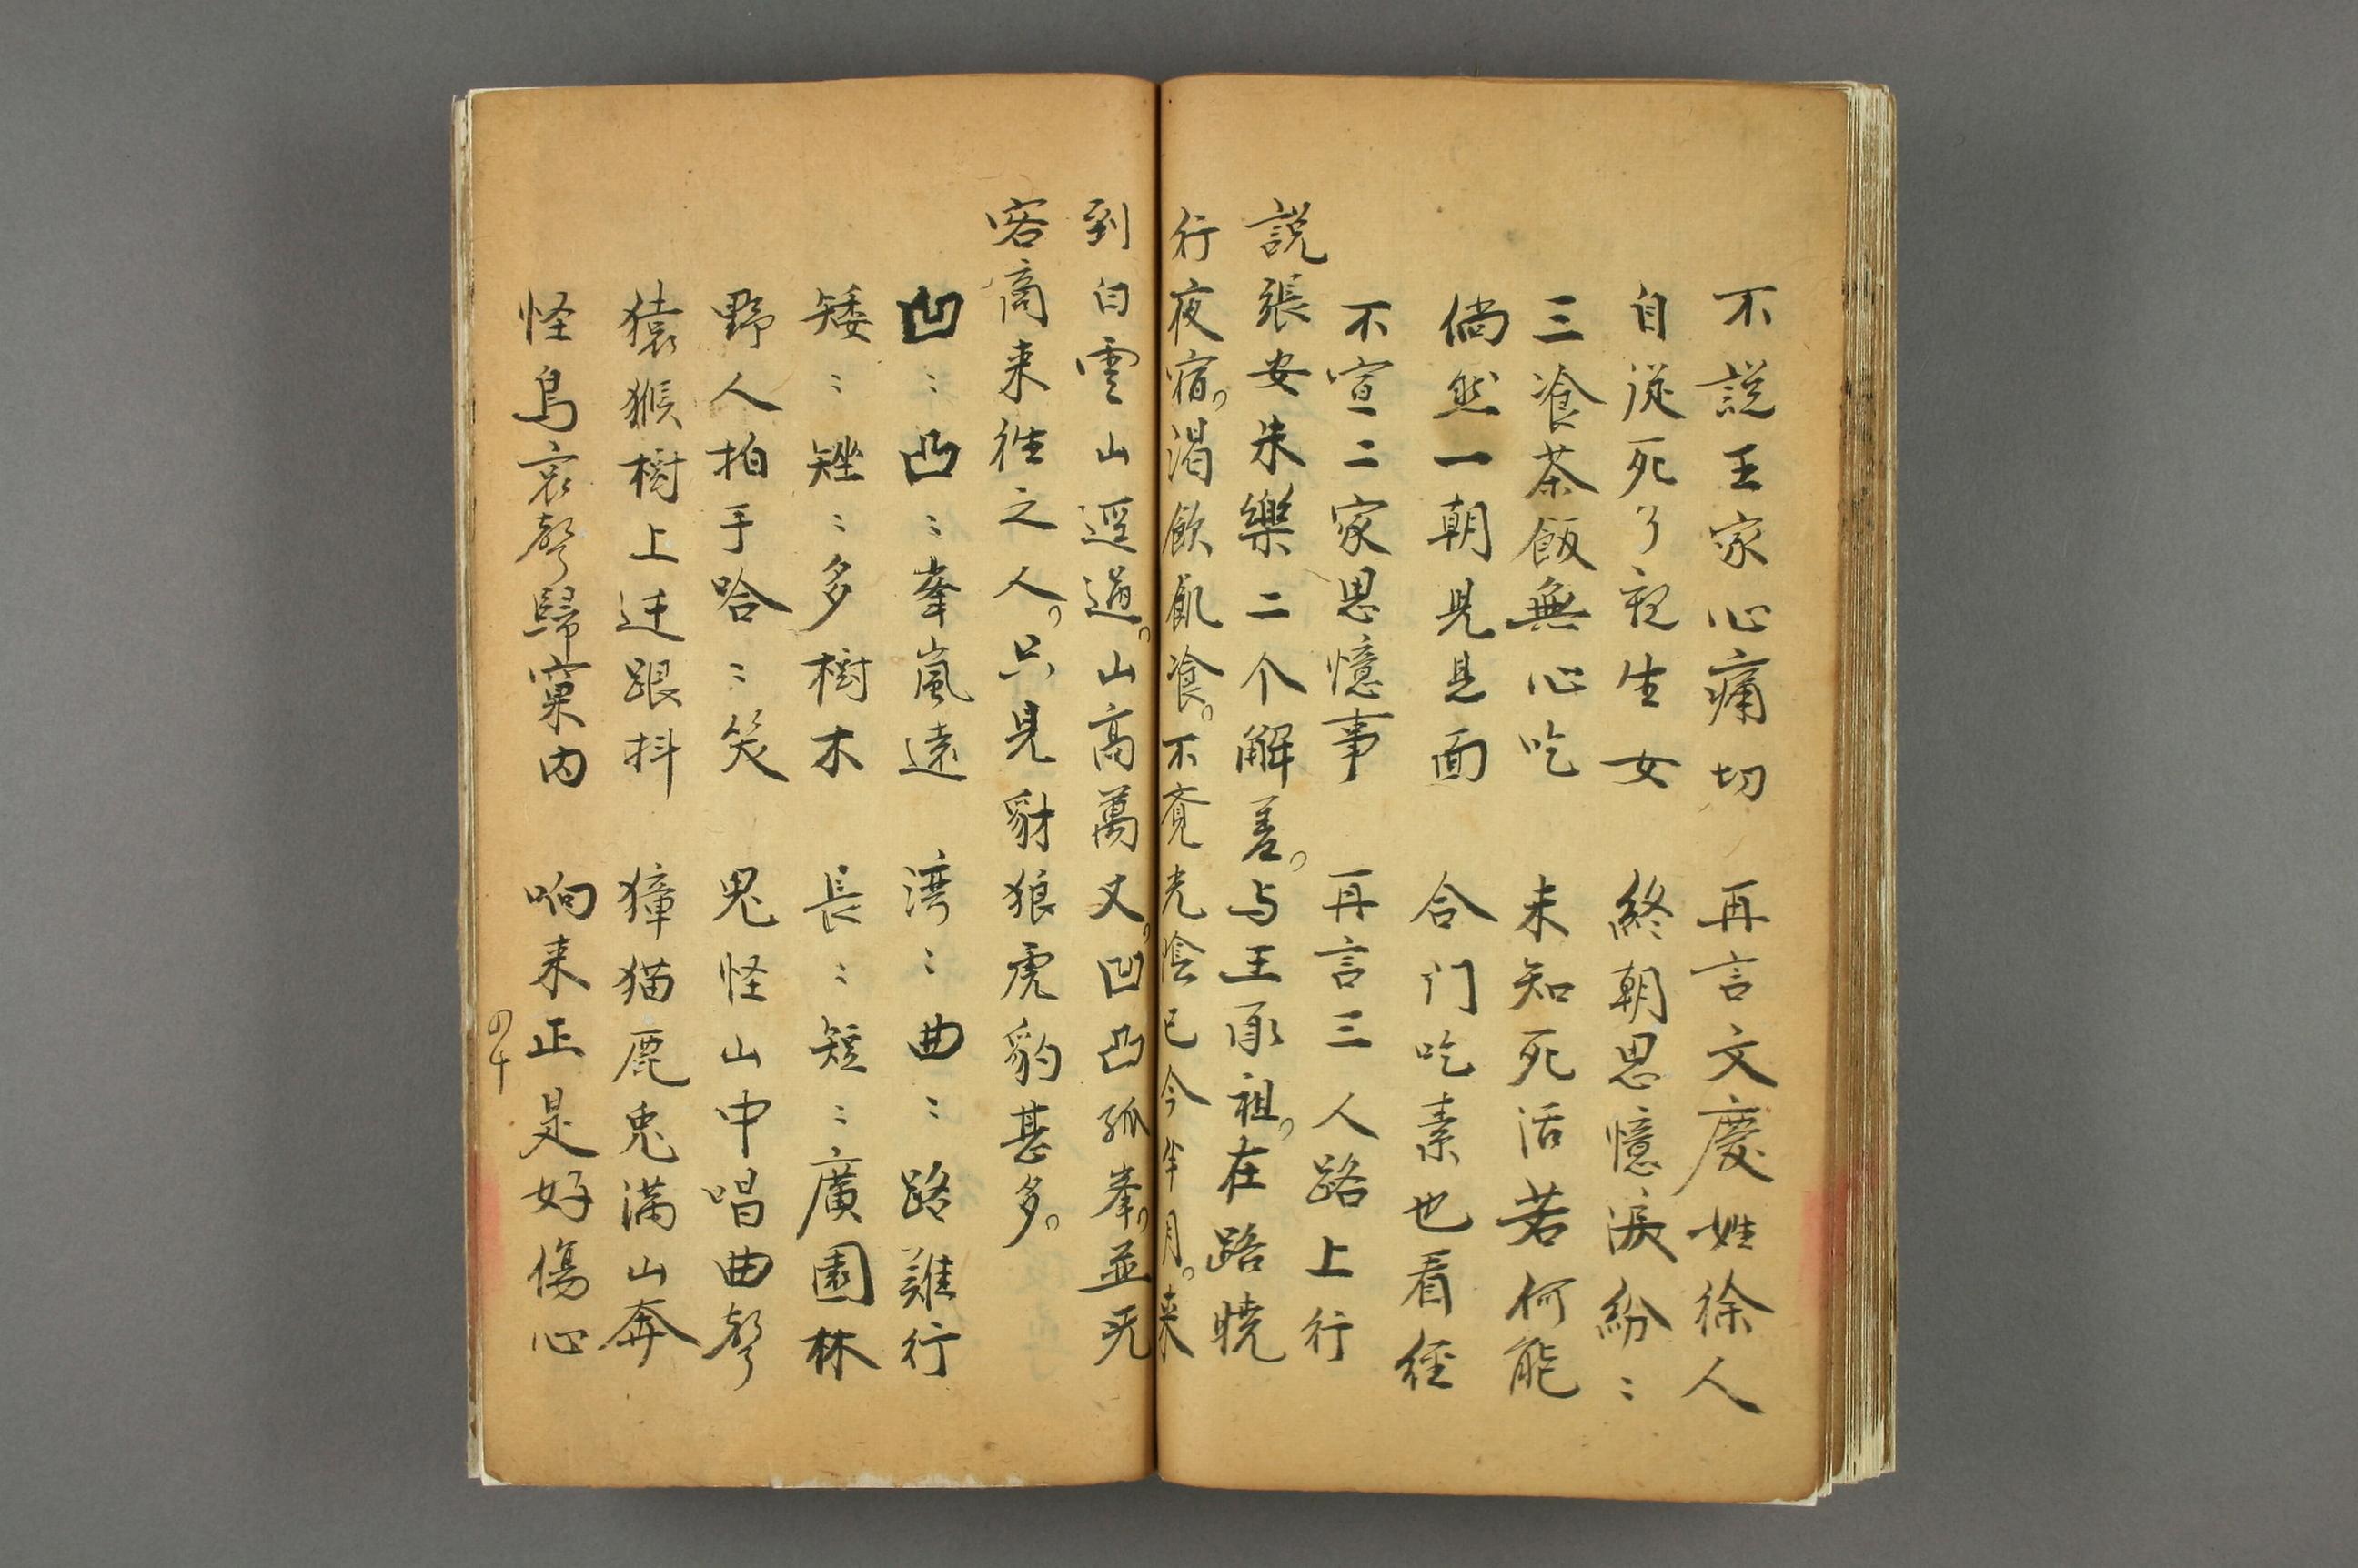 不説王家心痛切 再言文慶姓徐人
自從死了親生女 終朝思憶淚紛〻
三飡茶飯無心吃 未知死活若何能
倘然一朝見見面 合门吃素也看經
不宣二家思憶事 再言三人路上行
説張安朱樂二个解差。与王承祖。在路曉
行夜宿。渴飲飢飡。不覺光陰已今半月。来
到白雲山逕過。山高萬丈。凹凸孤峯。並旡
客商来徃之人。只見豺狼虎豹甚多。
凹〻凸〻峯嵐遠 湾〻曲〻路難行
矮〻矬〻多樹木 長〻短〻廣園林
野人拍手哈〻笑 鬼怪山中唱曲聲
猿猴樹上迁跟抖 獐猫鹿兎满山奔
怪鳥哀聲歸窠内 响来正是好傷心
四十